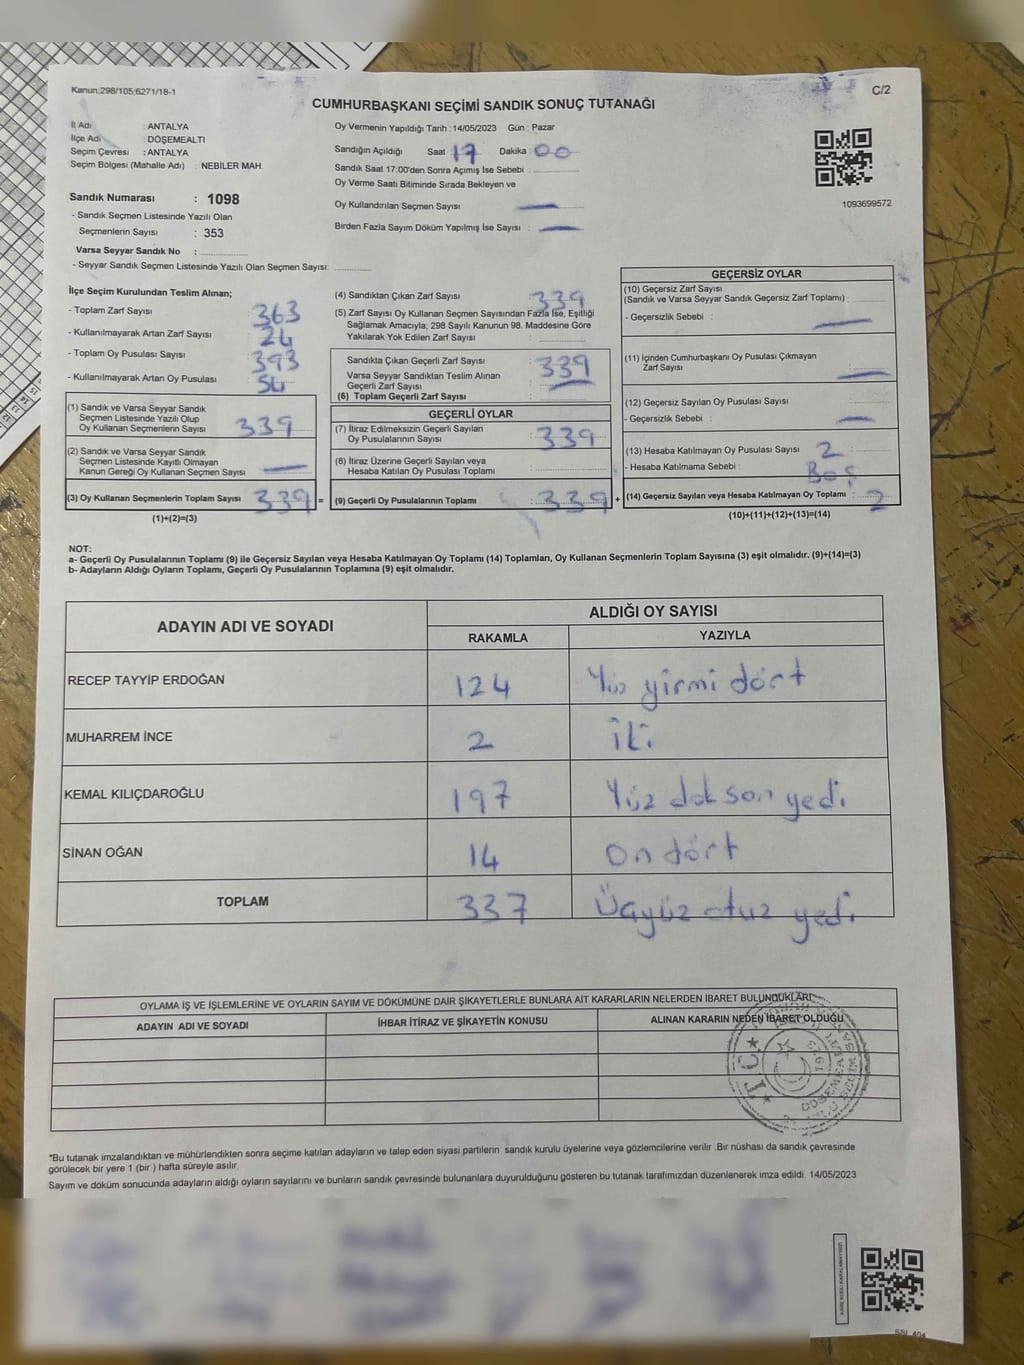 Kanun:298/105;6271/18-1
C/2
CUMHURBAŞKANI SEÇİMİ SANDIK SONUÇ TUTANAĞI
İl Adı : ANTALYA
İlçe Adı : DÖŞEMEALTI
Seçim Çevresi : ANTALYA
Seçim Bölgesi (Mahalle Adı) : NEBİLER MAH.
Oy Vermenin Yapıldığı Tarih : 14/05/2023 Gün : Pazar
Sandığın Açıldığı Saat 17 Dakika 00
Sandık Saat 17:00'den Sonra Açımış İse Sebebi :
Oy Verme Saati Bitiminde Sırada Bekleyen ve
Oy Kullandırılan Seçmen Sayısı :
Birden Fazla Sayım Döküm Yapılmış İse Sayısı :
1093699572
Sandık Numarası : 1098
- Sandık Seçmen Listesinde Yazılı Olan
Seçmenlerin Sayısı : 353
Varsa Seyyar Sandık No :
- Seyyar Sandık Seçmen Listesinde Yazılı Olan Seçmen Sayısı:
İlçe Seçim Kurulundan Teslim Alınan;
- Toplam Zarf Sayısı : 363
- Kullanılmayarak Artan Zarf Sayısı : 24
- Toplam Oy Pusulası Sayısı : 393
- Kullanılmayarak Artan Oy Pusulası : 54
(1) Sandık ve Varsa Seyyar Sandık
Seçmen Listesinde Yazılı Olup
Oy Kullanan Seçmenlerin Sayısı 339
(2) Sandık ve Varsa Seyyar Sandık
Seçmen Listesinde Kayıtlı Olmayan
Kanun Gereği Oy Kullanan Seçmen Sayısı
(3) Oy Kullanan Seçmenlerin Toplam Sayısı 339 =
(1)+(2)=(3)
(4) Sandıktan Çıkan Zarf Sayısı 339
(5) Zarf Sayısı Oy Kullanan Seçmen Sayısından Fazla İse, Eşitliği
Sağlamak Amacıyla; 298 Sayılı Kanunun 98. Maddesine Göre
Yakılarak Yok Edilen Zarf Sayısı :
Sandıkta Çıkan Geçerli Zarf Sayısı : 339
Varsa Seyyar Sandıktan Teslim Alınan
Geçerli Zarf Sayısı :
(6) Toplam Geçerli Zarf Sayısı :
GEÇERLİ OYLAR
(7) İtiraz Edilmeksizin Geçerli Sayılan
Oy Pusulalarının Sayısı : 339
(8) İtiraz Üzerine Geçerli Sayılan veya
Hesaba Katılan Oy Pusulası Toplamı :
(9) Geçerli Oy Pusulalarının Toplamı : 339 +
GEÇERSİZ OYLAR
(10) Geçersiz Zarf Sayısı
(Sandık ve Varsa Seyyar Sandık Geçersiz Zarf Toplamı) :
- Geçersizlik Sebebi :
(11) İçinden Cumhurbaşkanı Oy Pusulası Çıkmayan
Zarf Sayısı :
(12) Geçersiz Sayılan Oy Pusulası Sayısı :
- Geçersizlik Sebebi :
(13) Hesaba Katılmayan Oy Pusulası Sayısı : 2
- Hesaba Katılmama Sebebi : Boş
(14) Geçersiz Sayılan veya Hesaba Katılmayan Oy Toplamı : 2
(10)+(11)+(12)+(13)=(14)
NOT:
a- Geçerli Oy Pusulalarının Toplamı (9) ile Geçersiz Sayılan veya Hesaba Katılmayan Oy Toplamı (14) Toplamları, Oy Kullanan Seçmenlerin Toplam Sayısına (3) eşit olmalıdır. (9)+(14)=(3)
b- Adayların Aldığı Oyların Toplamı, Geçerli Oy Pusulalarının Toplamına (9) eşit olmalıdır.
ADAYIN ADI VE SOYADI
ALDIĞI OY SAYISI
RAKAMLA YAZIYLA
RECEP TAYYİP ERDOĞAN 124 Yüz yirmi dört
MUHARREM İNCE 2 iki
KEMAL KILIÇDAROĞLU 197 Yüz doksan yedi
SİNAN OĞAN 14 On dört
TOPLAM 337 Üçyüz otuz yedi
OYLAMA İŞ VE İŞLEMLERİNE VE OYLARIN SAYIM VE DÖKÜMÜNE DAİR ŞİKAYETLERLE BUNLARA AİT KARARLARIN NELERDEN İBARET BULUNDUKLARI
ADAYIN ADI VE SOYADI İHBAR İTİRAZ VE ŞİKAYETİN KONUSU ALINAN KARARIN NEDEN İBARET OLDUĞU
T.C.
*Bu tutanak imzalandıktan ve mühürlendikten sonra seçime katılan adayların ve talep eden siyasi partilerin sandık kurulu üyelerine veya gözlemcilerine verilir. Bir nüshası da sandık çevresinde
görülecek bir yere 1 (bir) hafta süreyle asılır.
Sayım ve döküm sonucunda adayların aldığı oyların sayılarını ve bunların sandık çevresinde bulunanlara duyurulduğunu gösteren bu tutanak tarafımızdan düzenlenerek imza edildi. 14/05/2023